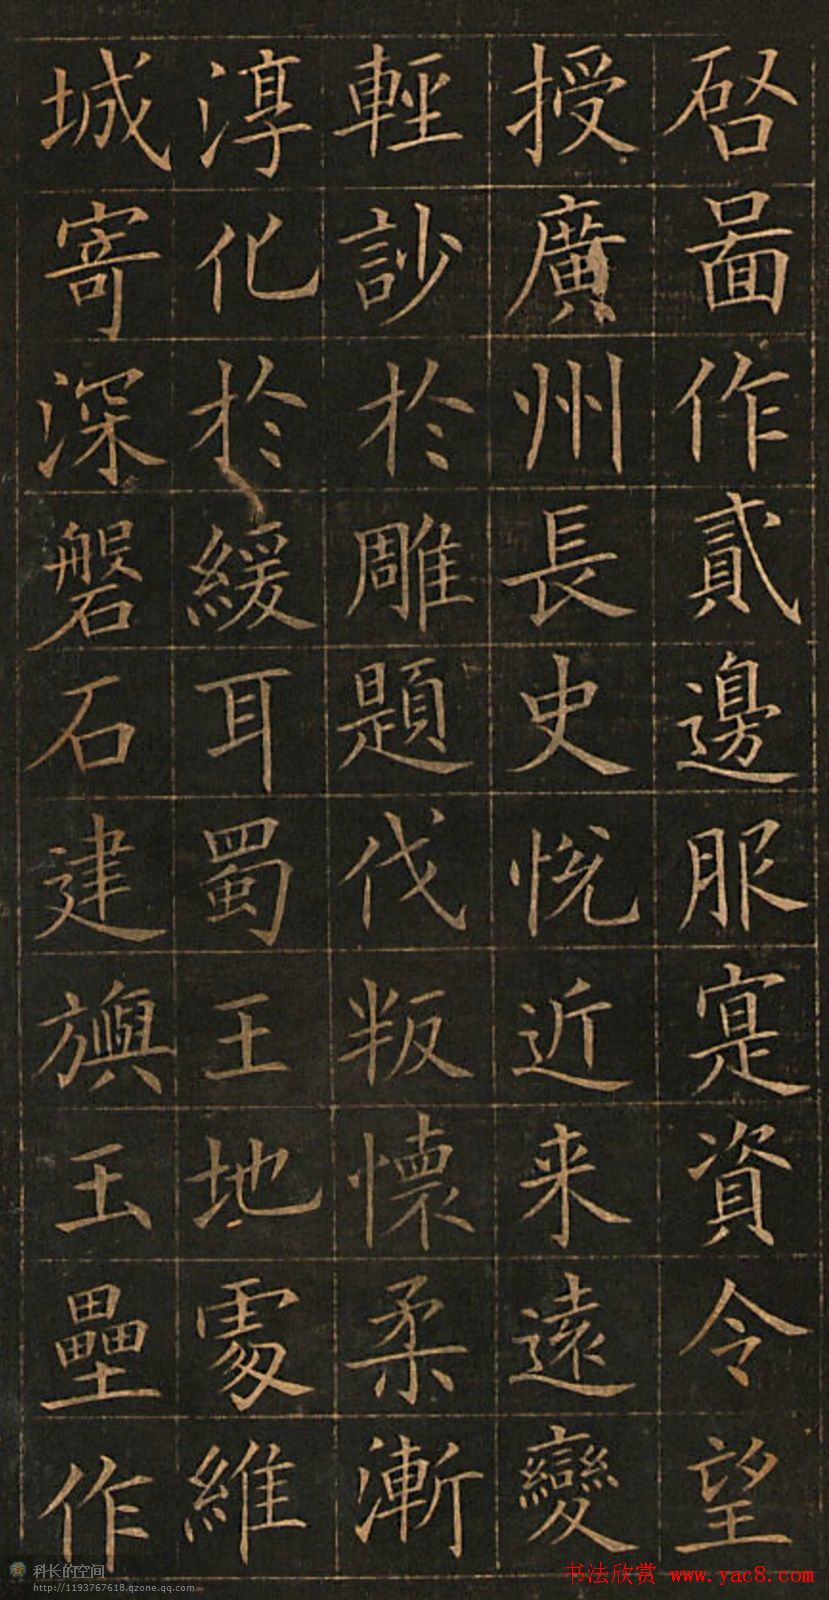 启啚作貳邊服寔資令望
授廣州長史悅近来遠變
輕訬於雕題伐叛懷柔漸
淳化於緩耳蜀王地處維
城寄深磐石建旟玉壘作
科长的空间
http://1193767618.qzone.qq.com
书法欣赏 www.yac8.com